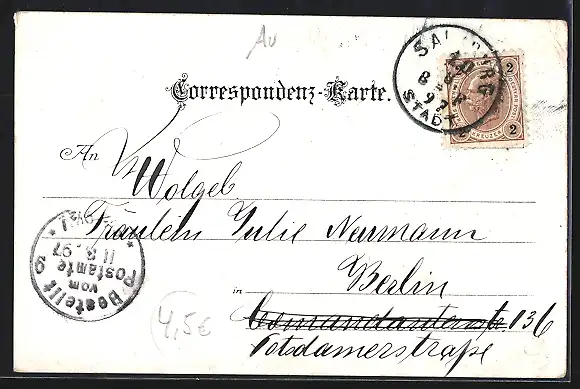 Au
SALZBURG
STADT
2 2
2 KREUZER 2
Correspondenz-Karte.
An
Wolgeb
Fräulein Julie Neumann
Berlin
in
Comandantenstr. 136
Potsdamerstraße
Bestellt
vom
Postamte 9
11 8. 97
4,5€